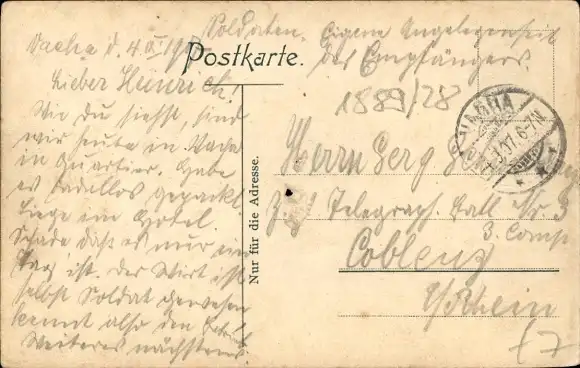 Soldaten. Eigene Angelegenheit
des Empfängers.
Postkarte.
1889/28
Vacha d. 4.
Lieber Heinrich!
Wie Du siehst, sind
wir heute in Vacha
in Quartier. Habe
es tadellos gepackt
liege im Hotel.
Schade daß es nur ein
Tag ist. Der Wirt ist
selbst Soldat gewesen
kennt also den Betrieb
Weiteres nächstens.
Nur für die Adresse.
VACHA
17.6-7N
Herrn
Telegraph. Batl. Nr. 3
3. Comp
Coblenz
a/Rhein